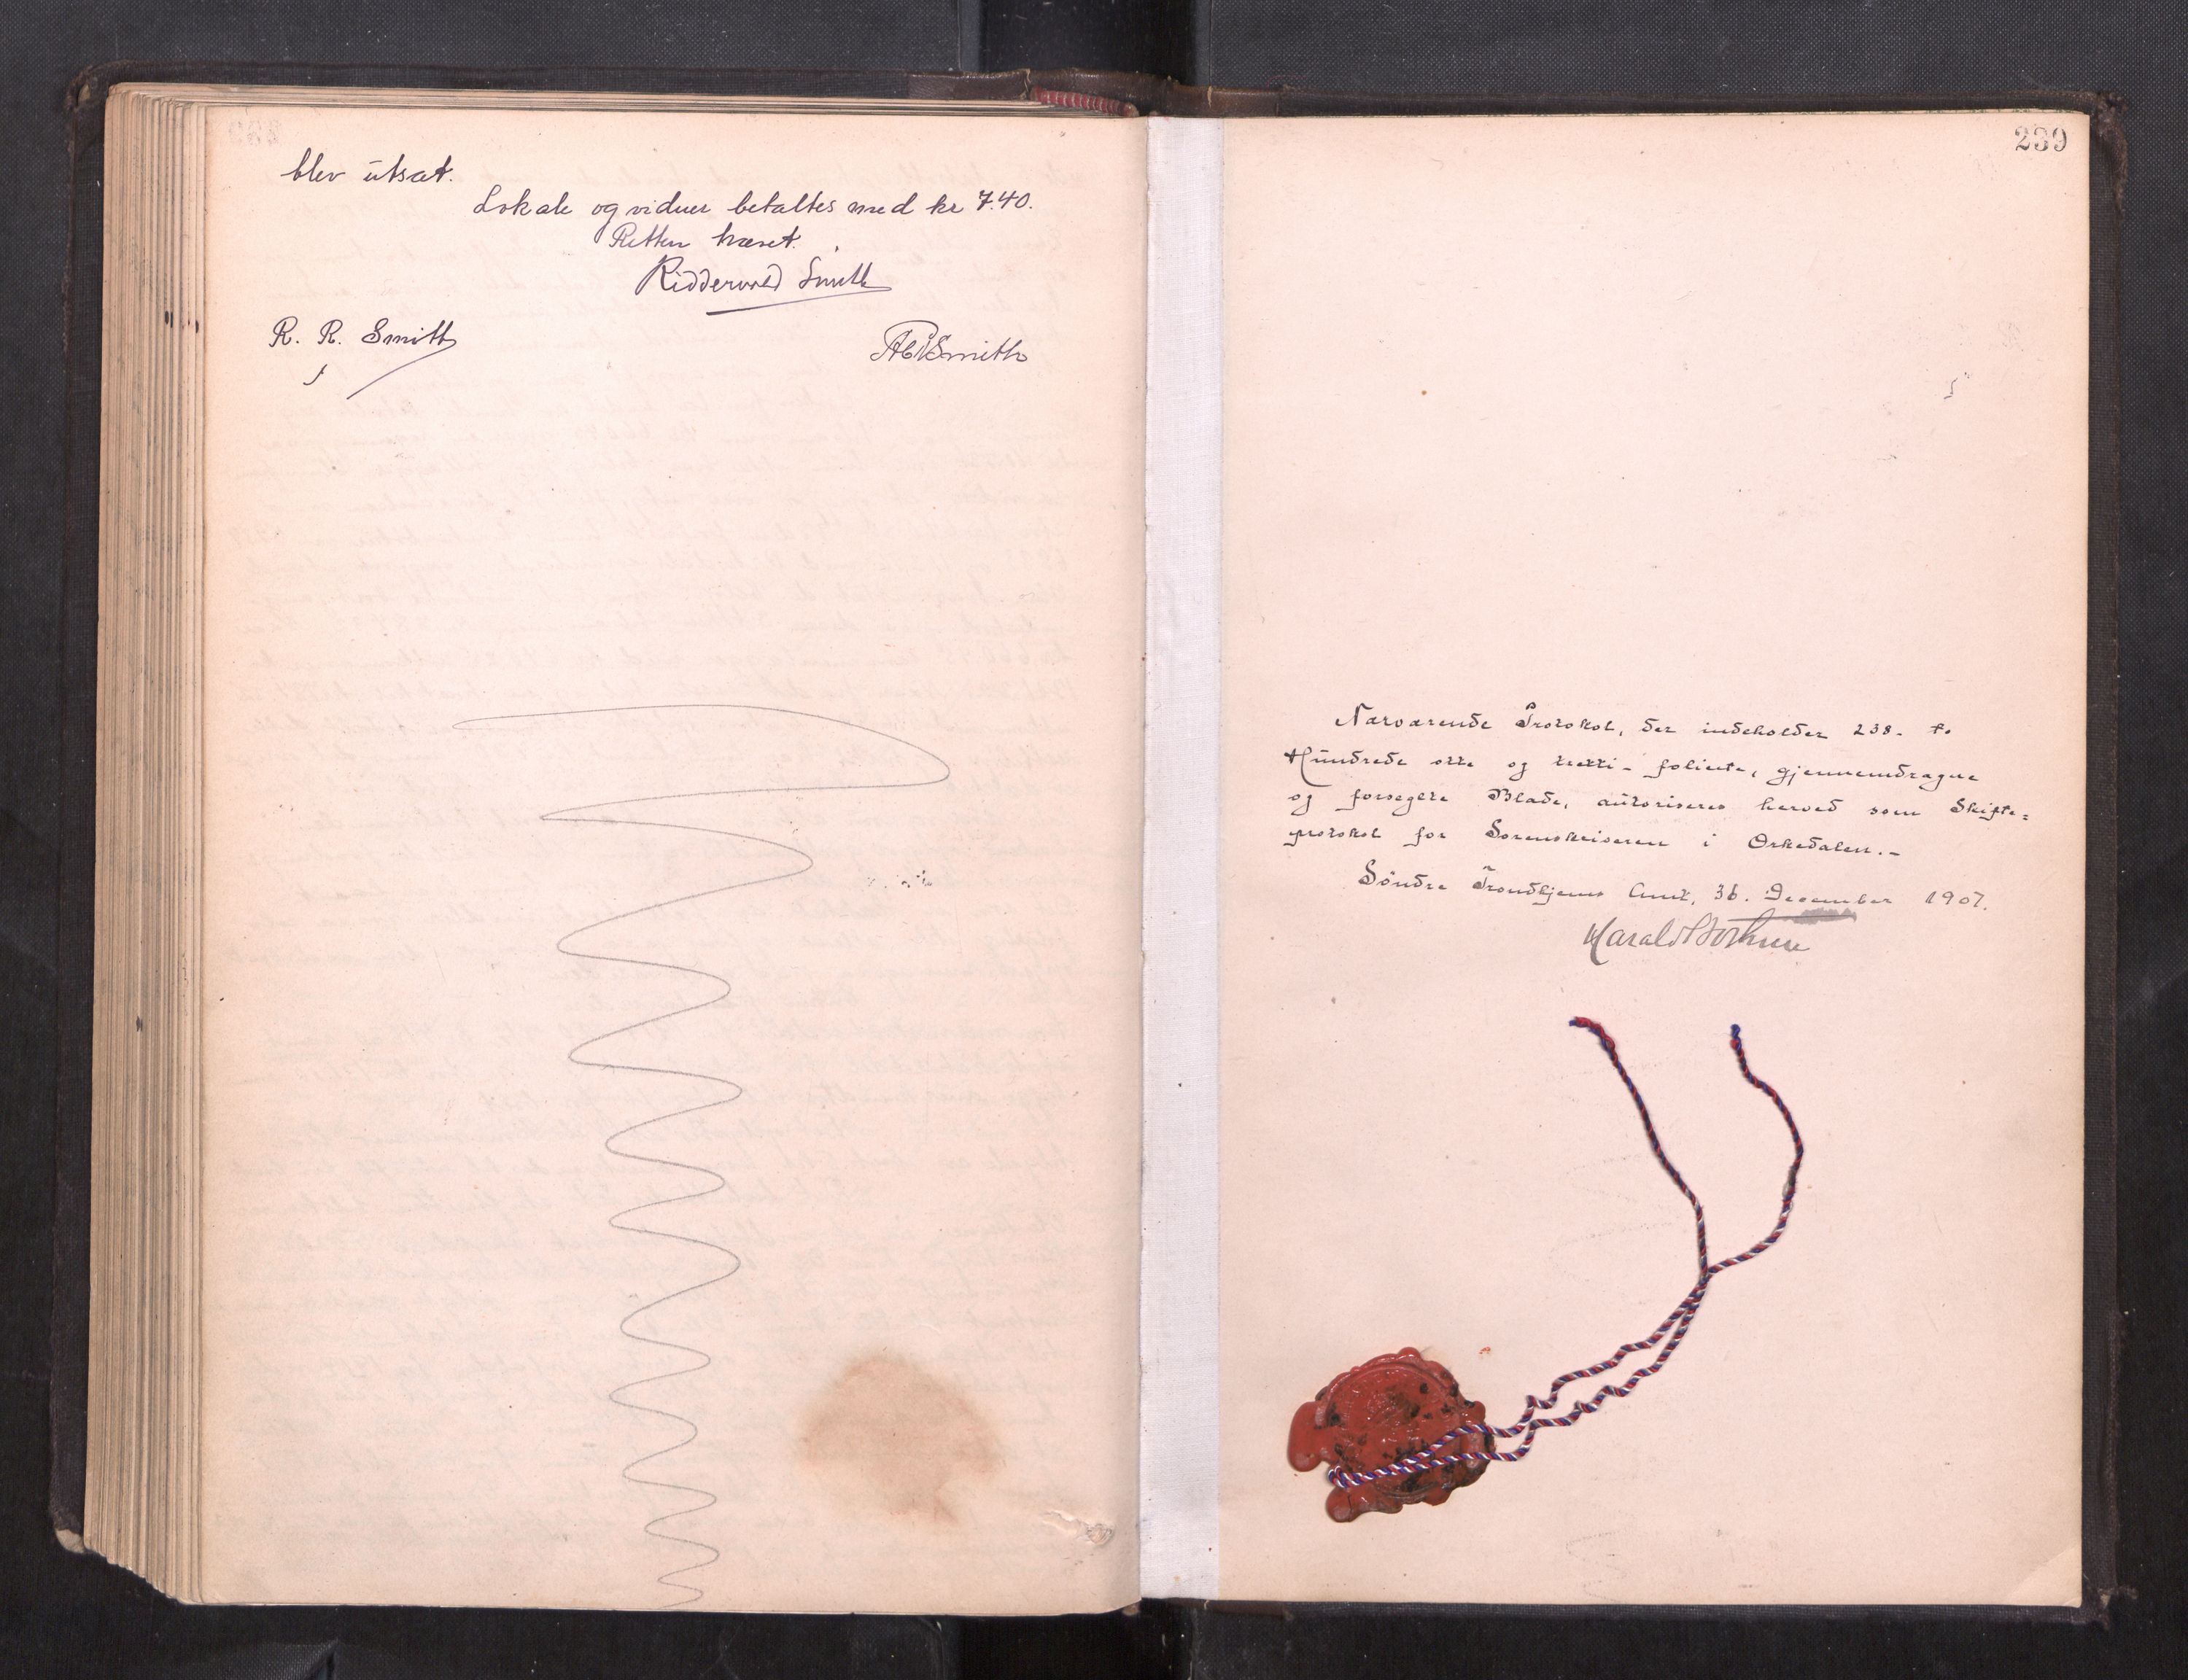 blev utsat.
Lokale og vidner betaltes med kr 7.40.
Retten hævet.
Riddervold Smith
R. R. Smith
Smith
239
Nærværende Protokol, der indeholder 238. to
Hundrede otte og tretti - folierte, gjennemdragne
og forseglte Blade, autoriseres herved som Skifte=
protokol for Sorenskriveren i Orkedalen.-
Söndre Trondhjems Amt, December 1907.
Harald Bothner